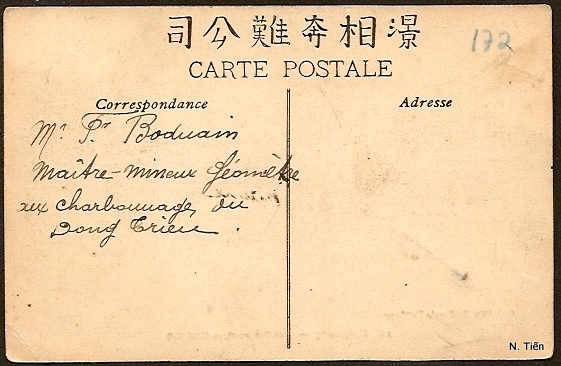 司公難奔相㵮
172
CARTE POSTALE
Correspondance
Adresse
Mr Pr Boduain
Maître-mineur Géomètre
aux charbonnages du
Dong Trieu.
N. Tiến